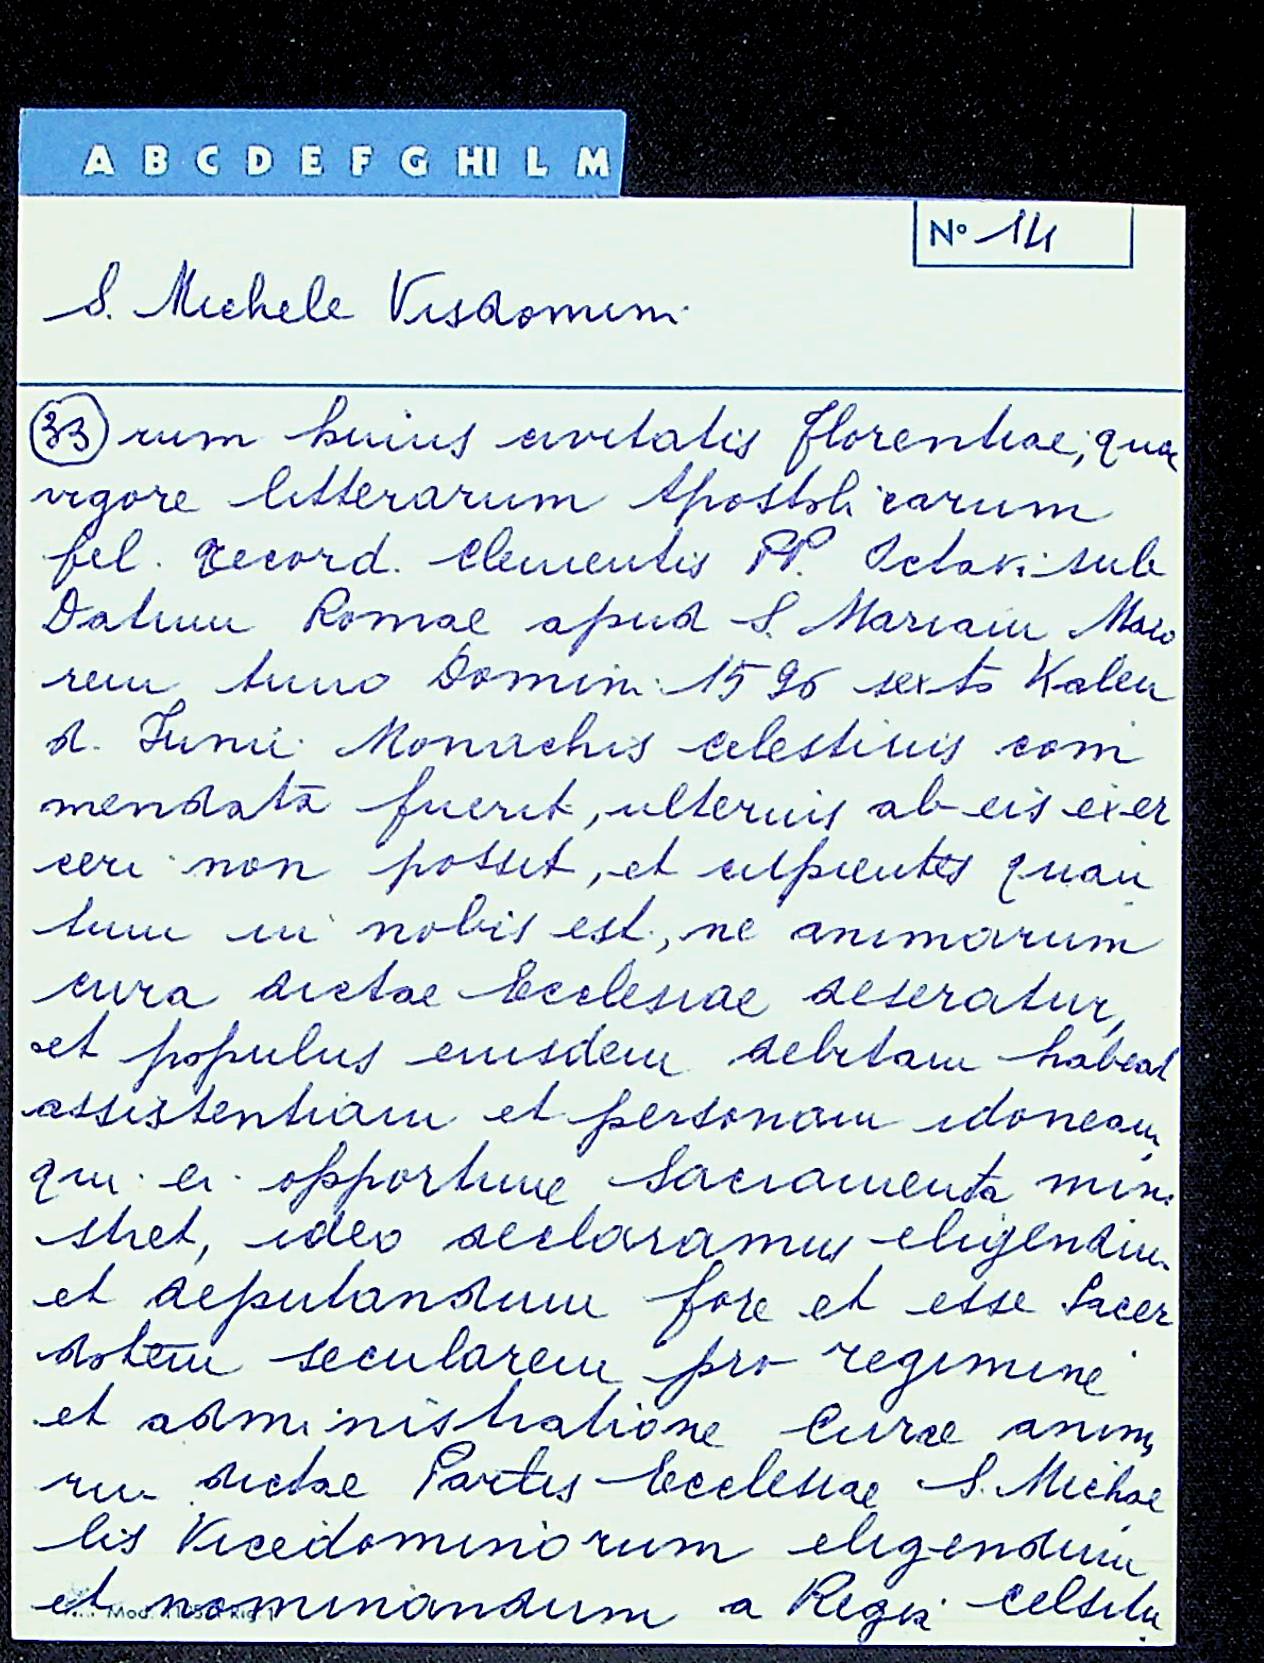 A B C D E F G HI L M
N° 14
S. Michele Visdomini
33 rum huius civitatis Florentiae, quae
vigore litterarum Apostolicarum
fel. record. Clementis PP. Octavi sub
Datum Romae apud S. Mariam Maio
rem Anno Domini 1596 sexto Kalen
d. Junii Monachis celestinis com
mendata fuerit, ulterius ab eis exer
ceri non possit, et cupientes quan
tum in nobis est, ne animarum
cura dictae Ecclesiae deseratur,
et populus eiusdem debitam habeat
assistentiam et personam idoneam,
qui ei opportune Sacramenta mini
stret, ideo declaramus eligendum
et deputandum fore et esse Sacer
dotem secularem pro regimine
et administratione Curae anima
rum dictae Partis Ecclesiae S. Michae
lis Vicedominorum eligendum
et nominandum a Regia Celsitu